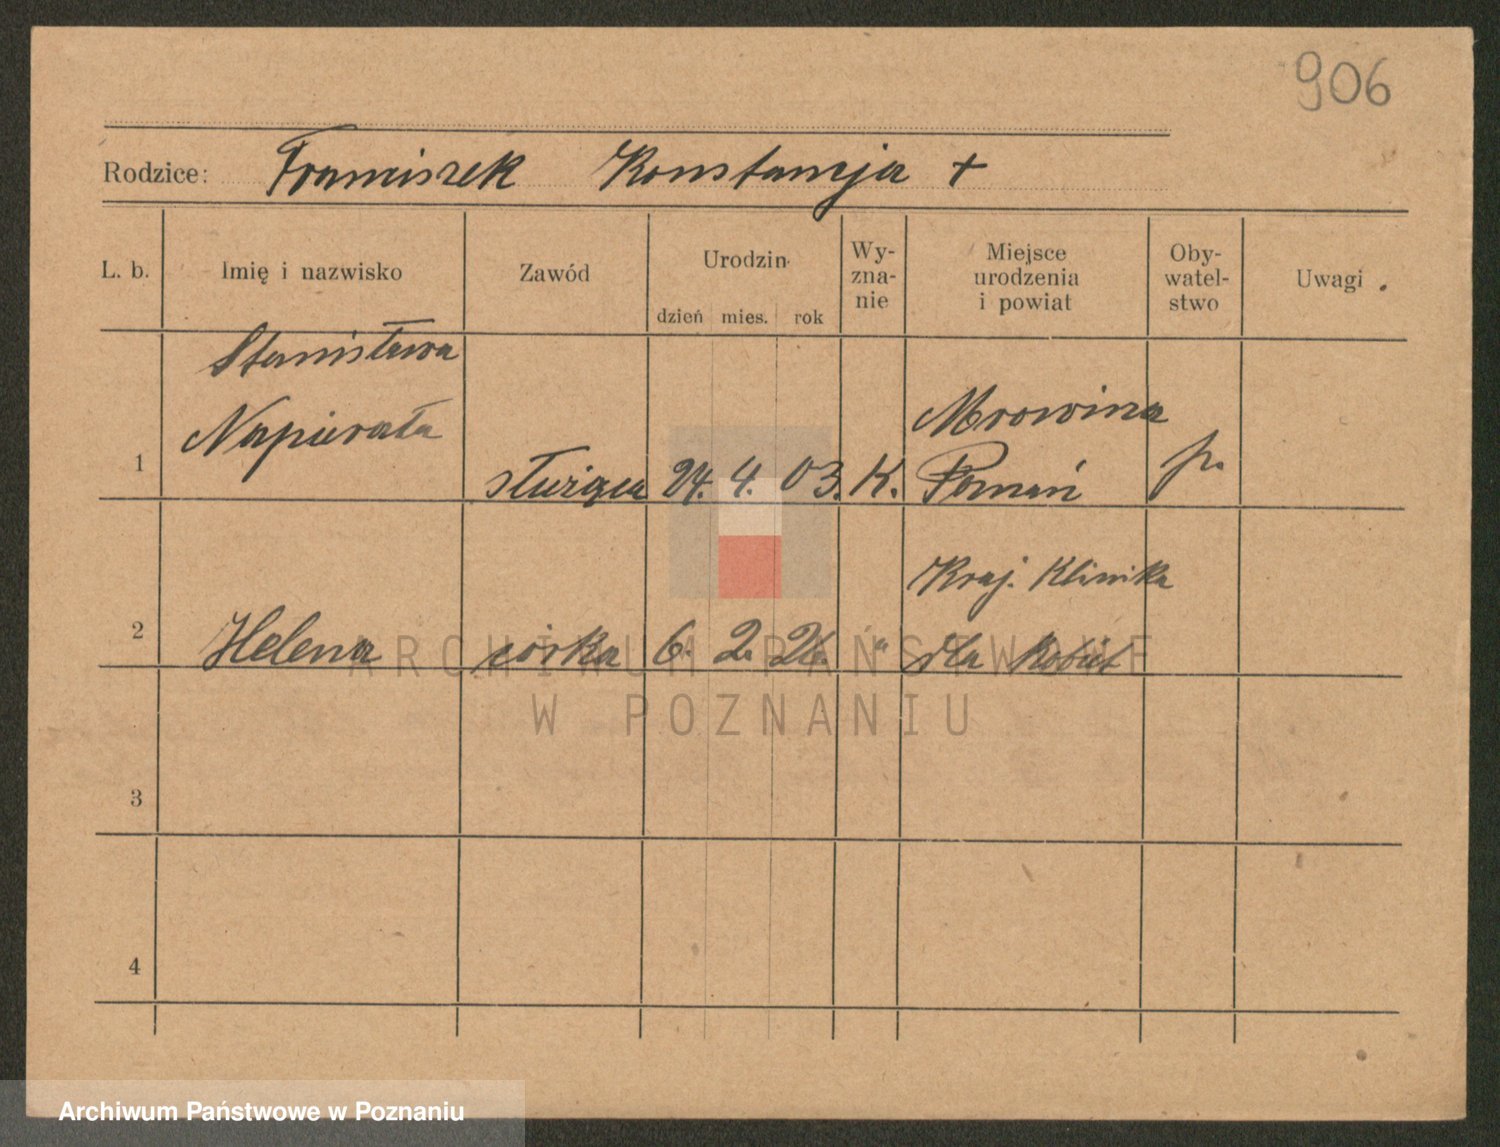 906
Rodzice: Franciszek Konstancja +
L. b. Imię i nazwisko Zawód Urodzin Wy-zna-nie Miejsce urodzenia i powiat Oby-watel-stwo Uwagi
dzień mies. rok
Stanisława
Napierała Mrowina
1 służąca 24. 4. 03. K. Poznań p.
Kraj. Klinika
2 Helena córka 6. 2. 26. " dla Kobiet
3
4
ARCHIWUM PAŃSTWOWE
W POZNANIU
Archiwum Państwowe w Poznaniu